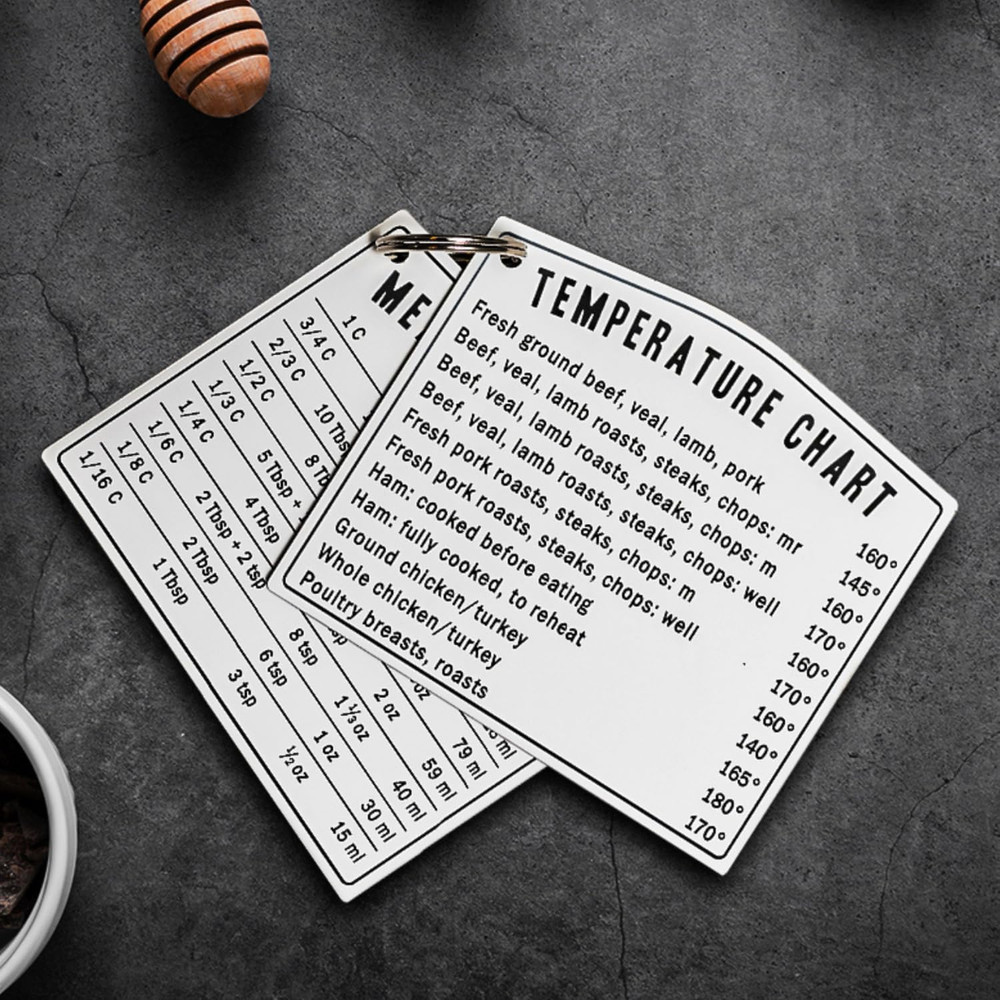 TEMPERATURE CHART
Fresh ground beef, veal, lamb, pork 160°
Beef, veal, lamb roasts, steaks, chops: mr 145°
Beef, veal, lamb roasts, steaks, chops: m 160°
Beef, veal, lamb roasts, steaks, chops: well 170°
Fresh pork roasts, steaks, chops: m 160°
Fresh pork roasts, steaks, chops: well 170°
Ham: cooked before eating 160°
Ham: fully cooked, to reheat 140°
Ground chicken/turkey 165°
Whole chicken/turkey 180°
Poultry breasts, roasts 170°
ME
1 C
3/4 C
2/3 C 10 Tbs
1/2 C 8 T
1/3 C 5 Tbsp +
1/4 C 4 Tbsp oz 79 ml
1/6 C 2 Tbsp + 2 tsp 8 tsp 2 oz 59 ml
1/8 C 2 Tbsp 6 tsp 1⅓ oz 40 ml
1/16 C 1 Tbsp 3 tsp 1 oz 30 ml
½ oz 15 ml